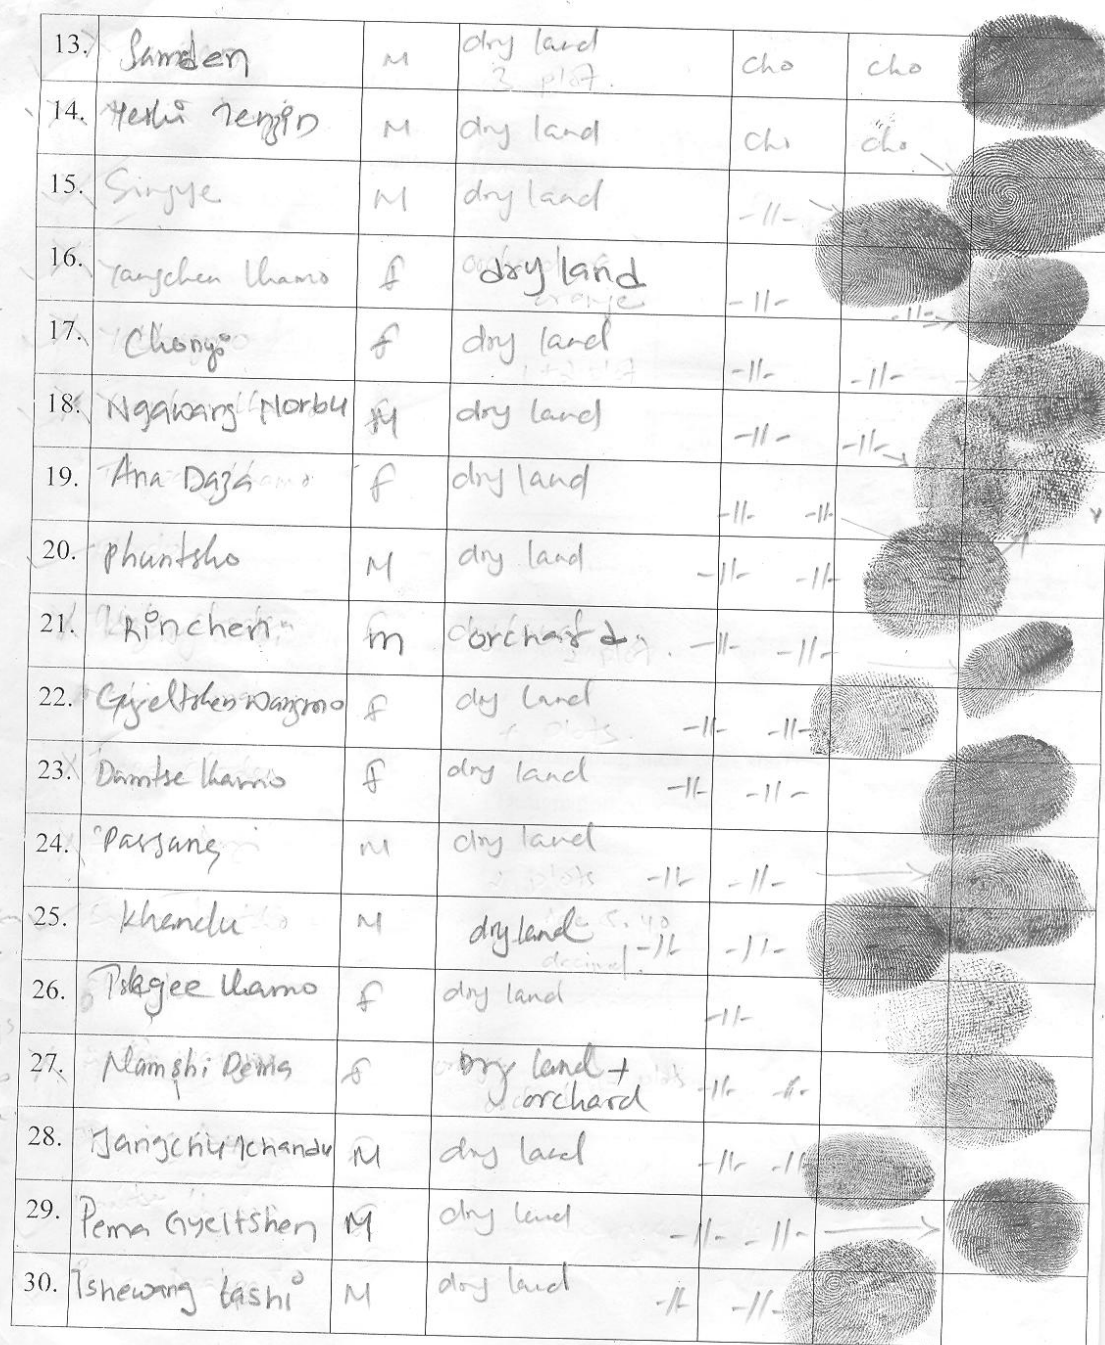 13. Samden M dry land cho cho
3 plot.
14. Heshi Tenzin M dry land cho cho
15. Singye M dry land -11-
16. Yangchen lhamo f dry land -11- -11-
orange
17. Chongi f dry land -11- -11-
18. Ngawang Norbu M dry land -11- -11-
19. Ana Daza f dry land -11- -11-
20. Phuntsho M dry land -11- -11-
21. Rinchen m orchard -11- -11-
22. Gyeltshen Wangmo f dry land -11- -11-
plots.
23. Damtse lhamo f dry land -11- -11-
24. Passang M dry land -11- -11-
plots
25. Khandu M dry land -11- -11-
decimel.
26. lhamo f dry land -11-
27. Namshi Dema f Dry land +
orchard -11- -11-
28. Jangchu Khandu M dry land -11- -11-
29. Pema Gyeltshen M dry land -11- -11-
30. Tshewang tashi M dry land -11- -11-